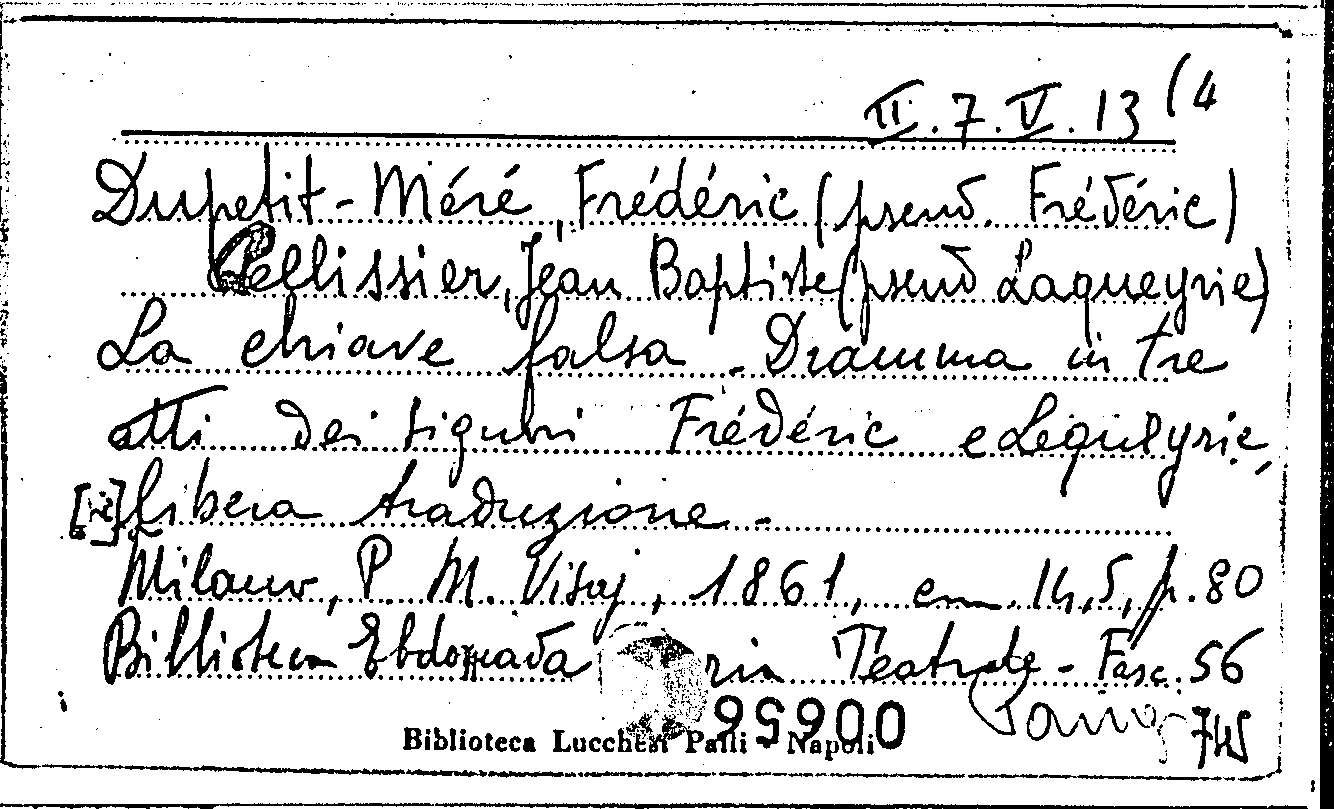 II.7.V.13(4
Dupetit-Méré, Frédéric (pseud. Frédéric)
Pellissier, Jean Baptiste (pseud Laqueyrie)
La chiave falsa - Dramma in tre
atti dei signori Frédéric e Lequeyrie,
Libera traduzione. -
Milano, P. M. Visaj, 1861, cm. 14,5, p. 80
Biblioteca Ebdomadaria Teatrale - Fasc. 56
00656
Biblioteca Lucchesi Palli - Napoli